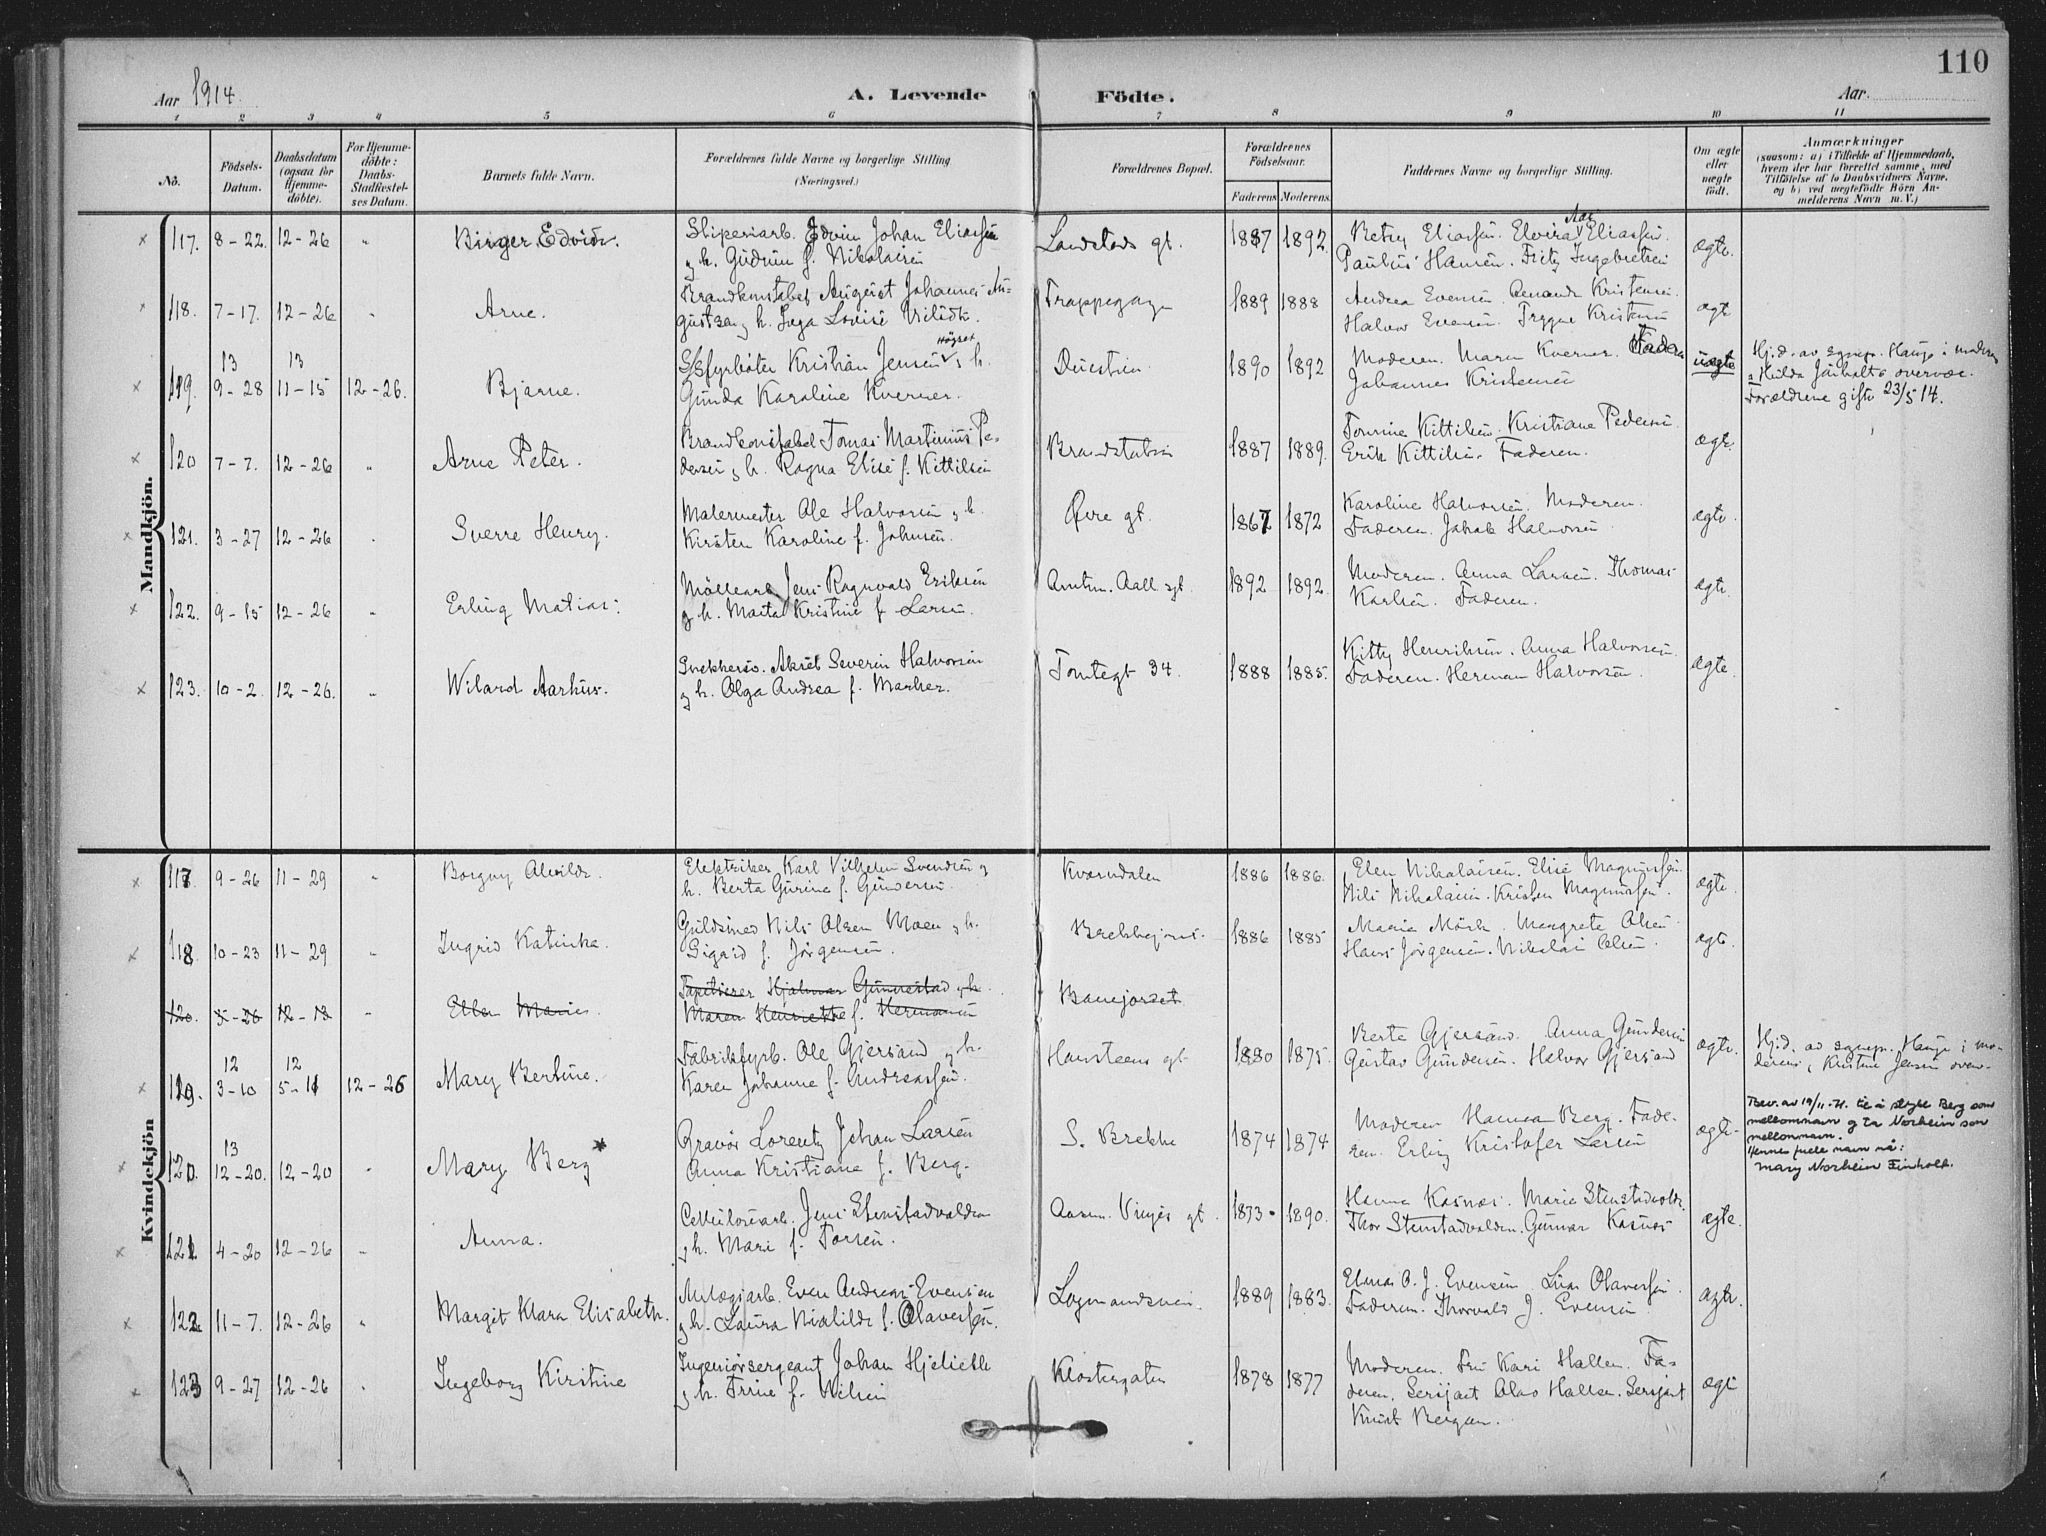 110
Aar 1914. A. Levende Födte. Aar.
1 2 3 4 5 6 7 8 9 10 11
No. Födsels-Datum. Daabsdatum (ogsaa for Hjemmedöbte). For Hjemmedöbte: Daabs-Stadfæstelses Datum. Barnets fulde Navn. Forældrenes fulde Navne og borgerlige Stilling (Næringsvei.) Forældrenes Bopæl. Forældrenes Födselsaar. Faderens Moderens. Faddernes Navne og borgerlige Stilling. Om ægte eller uægte födt. Anmærkninger (saasom: a) i Tilfælde af Hjemmedaab, hvem der har forrettet samme, med Tilföielse af to Daabsvidners Navne, og b) ved uægtefödte Börn Anmelderens Navn m. V.)
Mandkjön.
117. 8-22. 12-26 " Birger Edvin. Sliperiarb. Edvin Johan Eliassen Landstads gt. 1887 1892 Betsy Eliassen. Elvira Aai Eliassen. ægte.
og h. Gudrun f. Nikolaisen Paulus Hansen. Fritz Ingebretsen
118. 7-17. 12-26 " Arne. Brandkonstabel August Johannes Au- Trappegagn 1889 1888 Andrea Evensen. Kristensen. ægt
gustsen og h. Inga Lovise Halvor Evensen. Trygve Kristensen
119. 13 9-28 13 11-15 12-26. Bjarne. S/sfyrbøter Kristian Jensen Høgset og h. Duestien. 1890 1892 Moderen. Maren Kverner. Faderen uægte Hj.d. av sognepr. Hauge i moderens
Gunda Karoline Kverner. Johannes Kristensen & Hilda overvær.
Forældrene gifte 23/5 14.
120 7-7. 12-26 " Arne Peter. Brandkonstabel Tomas Martinius Pe- Brandstation 1887 1889. Tomine Kittilsen. Kristiane Pedersen. ægte.
dersen og h. Ragna Elise f. Kittilsen Erik Kittilsen. Faderen.
121. 3-27 12-26 . Sverre Henry. Malermester Ole Halvorsen og h. Øvre gt. 1867 1872 Karoline Halvorsen. Moderen. ægte.
Kirsten Karoline f. Johnsen. Faderen. Jakob Halvorsen.
122. 9-15 12-26 " Erling Matias. Møllearb. Jens Ragnvald Eriksen Amtm. Aall gt. 1892 1892. Moderen. Anna Larsen. Thomas ægte.
og h. Marta Kristine f. Larsen. Karlsen. Faderen.
123. 10-2. 12-26. " Wilard Aarhus. Snekkersv. Aksel Severin Halvorsen Tomtegt 34. 1888 1885. Kitty Henriksen. Anna Halvorsen. ægte.
og h. Olga Andrea f. Marker. Faderen. Herman Halvorsen.
Kvindekjön
117. 9-26 11-29 " Borgny Alvilde. Elektriker Karl Vilhelm Svendsen og Kverndalen 1886 1886. Elen Nikolaisen. Elise Magnussen. ægte.
h. Berta Gurine f. Gundersen. Nils Nikolaisen. Kristen Magnussen.
118. 10-23 11-29 " Ingrid Katinka. Guldsmed Nils Olsen Moen og h. Brekkejord. 1886 1885 Maria Mörk. Margrete Olsen. ægte.
Sigrid f. Jørgensen. Hans Jørgensen. Nikolai Olsen.
120. 5-26 12-13 " Ellen Marie. Tapetserer Hjalmar Gunnestad og h. Banejordet
Maren Henriette f. Hermansen
119. 12 3-10 12 5-11 12-26 Mary Bertine. Fabrikfyrb. Ole Gjersund og h. Hansteens gt. 1880 1875. Berte Gjersund. Anna Gundersen ægte. Hj.d. av sognepr. Hauge i mo-
Karen Johanne f. Andreassen. Gustav Gundersen. Halvor Gjersund derens, Kristine Jensen overv.
120. 13 12-20. 12-20 . Mary Berg * Gravør Lorentz Johan Larsen S. Brekke 1874 1874 Moderen Hanna Berg. Fade- ægte. Bev. av 19/11-71. til å sløife Berg som
Anna Kristiane f. Berg. ren. Erling Kristofer Larsen mellomnavn og ta Norheim som
mellomnavn.
Hennes fulle navn nå:
Mary Norheim Finholt.
121 4-20 12-26 " Anna. Cellulosearb. Jens Stenstadvolden Aasm. Vinjes gt. 1873. 1890. Hanna Kasnæs. Marie Stenstadvolden. ægte.
og h. Mari f. Torsen. Thor Stenstadvolden. Gunnar Kasnæs
122. 11-7. 12-26 " Margit Klara Elisabeth. Anlægsarb. Even Andreas Evensen Lagmandsvei. 1889 1883. Elmas O. J. Evensen Lina Olavessen. ægte.
og h. Laura Matilde f. Olavessen. Faderen. Thorvald J. Evensen
123 9-27 12-26 . Ingeborg Kirstine Ingeniørsergeant Johan Hjelseth Klostergaten 1878 1877 Moderen. Fru Kari Hallen. Fa- ægte
og h. Trine f. Nilsen deren. Sersjant Olav Hallen. Sersjant
Knut Bergan.